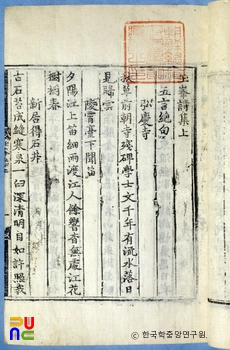 玉峯詩集上
五言絶句
弘慶寺
秋草前朝寺殘碑學士文千年有流水落日
見歸雲
陵霄臺下聞笛
夕陽江上笛細雨渡江人餘響杳無處江花
樹樹春
新居得石井
古石苔成縫寒泉一臼深清明自如許照我
한국학중앙연구원